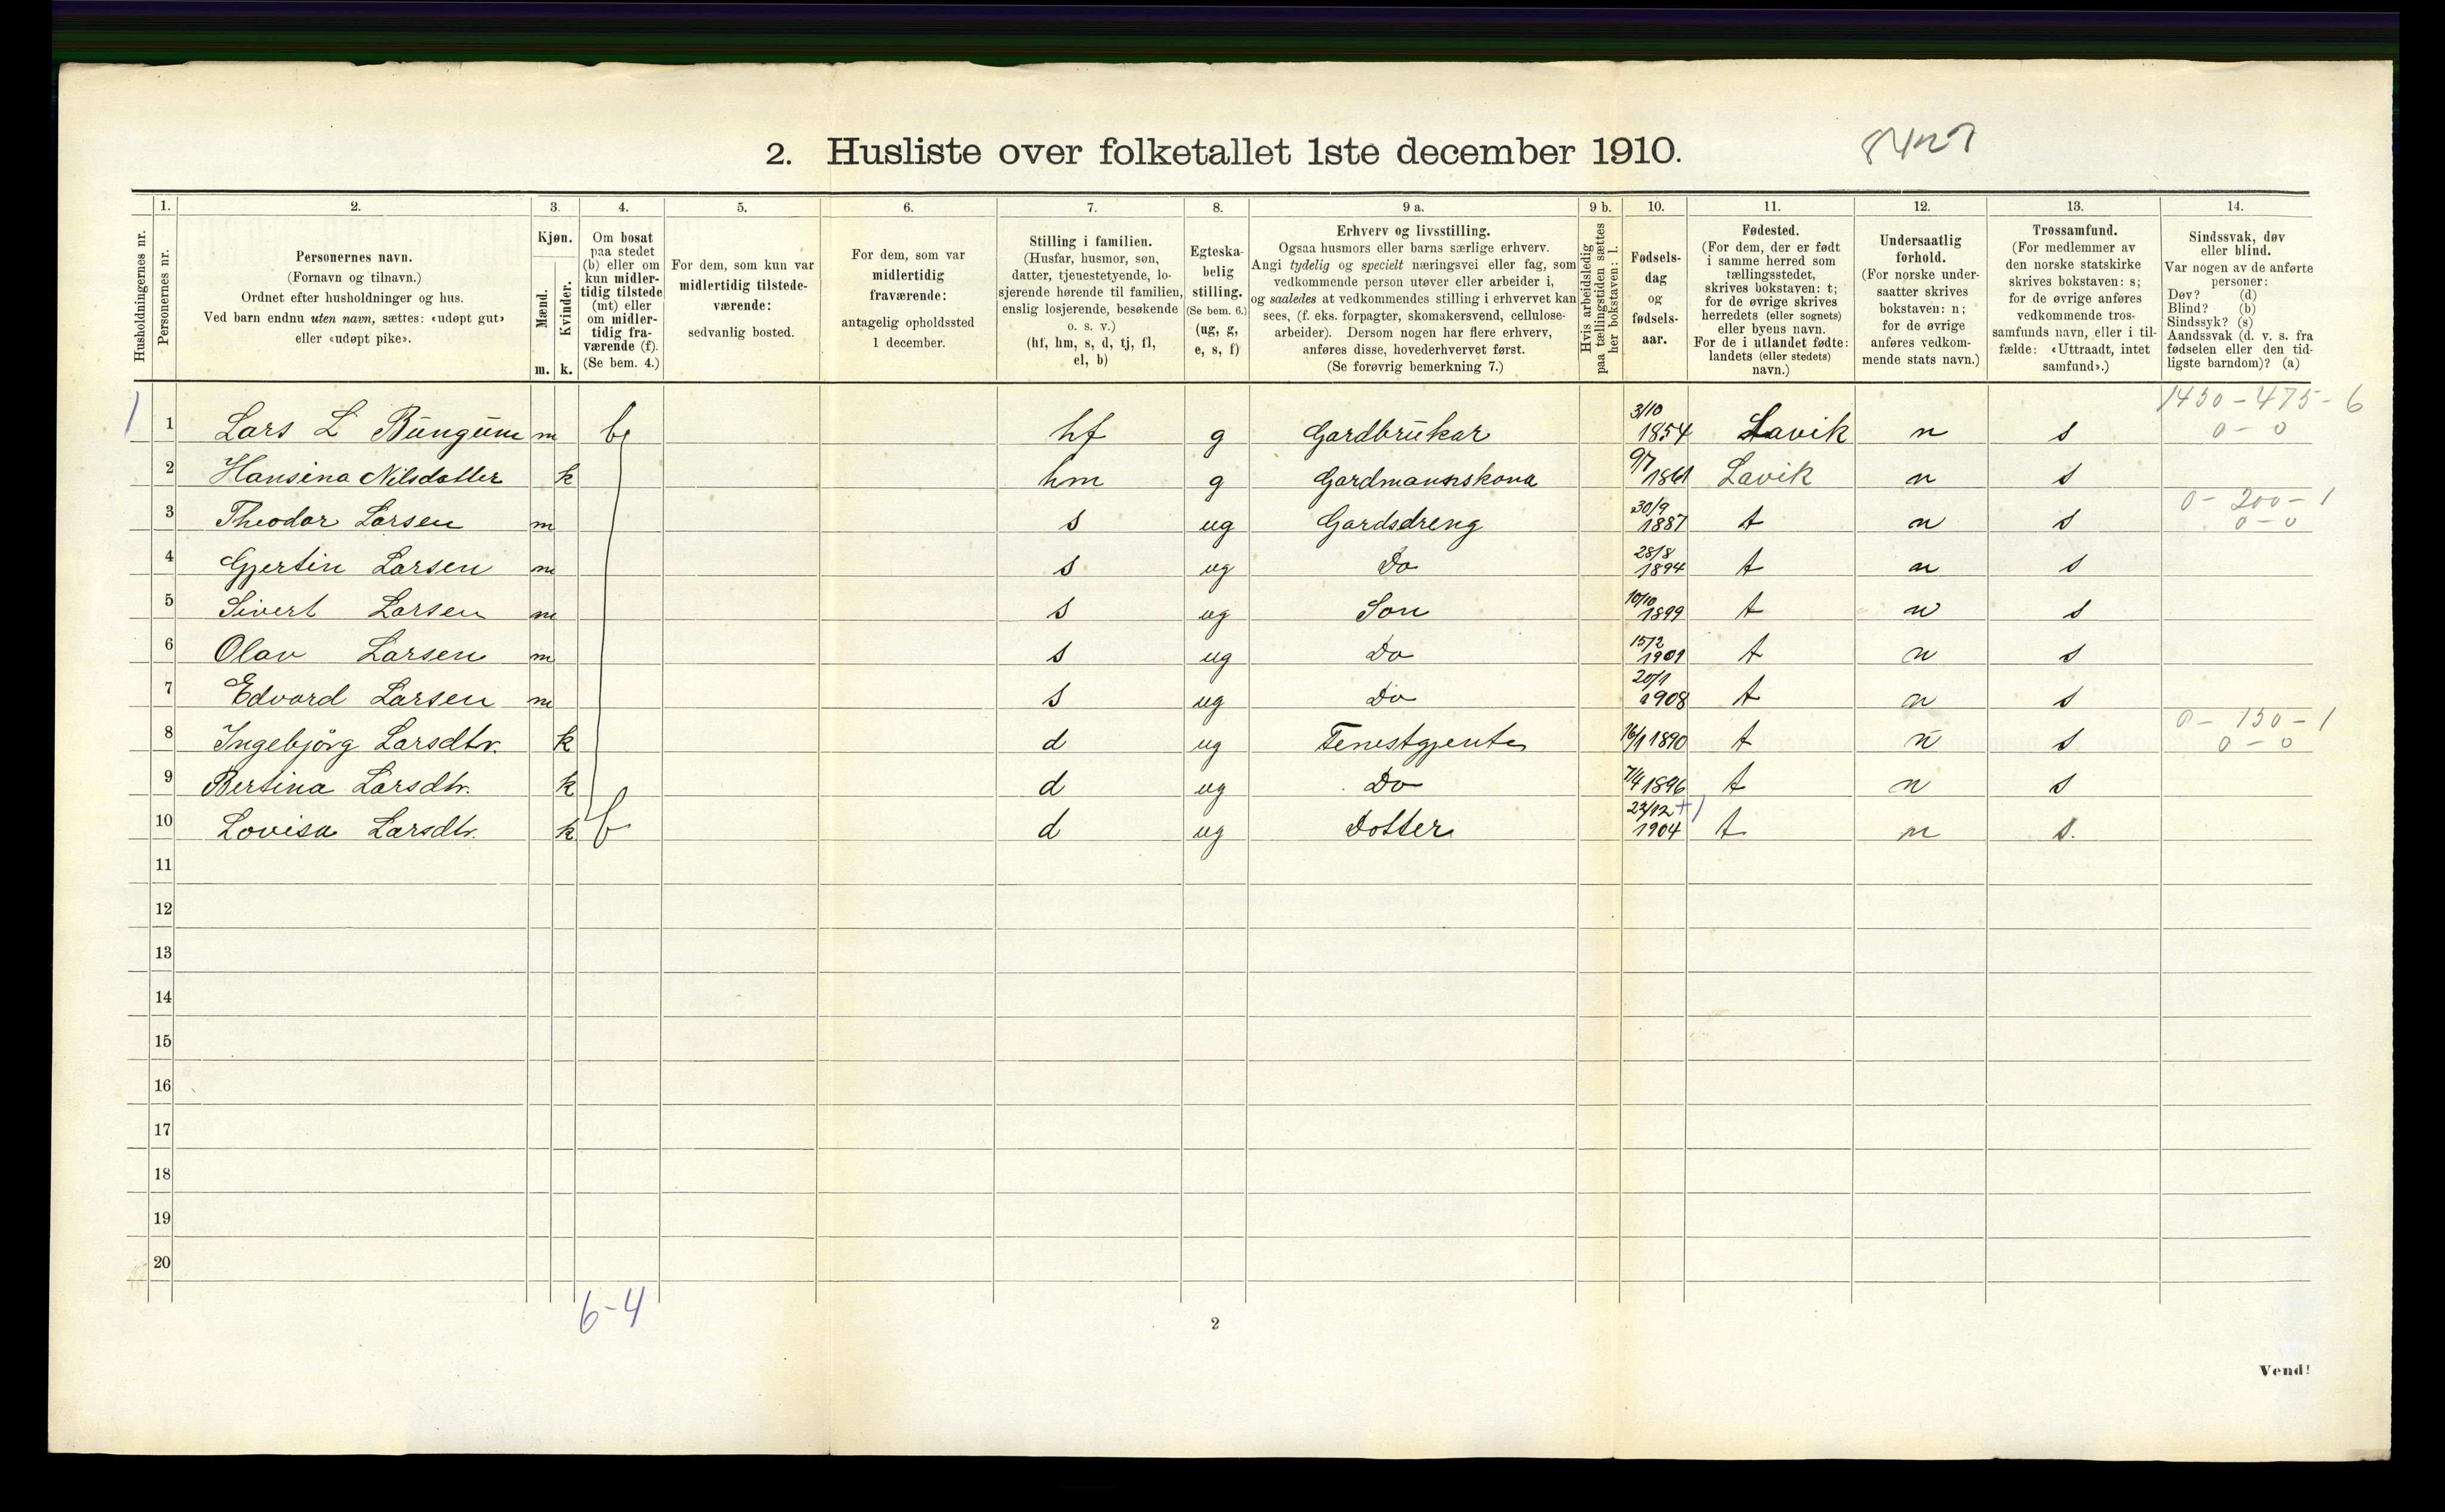 2. Husliste over folketallet 1ste december 1910.
1. 2. 3. 4. 5. 6. 7. 8. 9 a. 9 b. 10. 11. 12. 13. 14.
Husholdningernes nr.
Personernes nr.
Personernes navn.
(Fornavn og tilnavn.)
Ordnet efter husholdninger og hus.
Ved barn endnu uten navn, sættes: «udøpt gut»
eller «udøpt pike».
Kjøn.
Mænd.
Kvinder.
m. k.
Om bosat
paa stedet
(b) eller om
kun midler-
tidig tilstede
(mt) eller
om midler-
tidig fra-
værende (f).
(Se bem. 4.)
For dem, som kun var
midlertidig tilstede-
værende:
sedvanlig bosted.
For dem, som var
midlertidig
fraværende:
antagelig opholdssted
1 december.
Stilling i familien.
(Husfar, husmor, søn,
datter, tjenestetyende, lo-
sjerende hørende til familien,
enslig losjerende, besøkende
o. s. v.)
(hf, hm, s, d, tj, fl,
el, b)
Egteska-
belig
stilling.
(Se bem. 6.)
(ug, g,
e, s, f)
Erhverv og livsstilling.
Ogsaa husmors eller barns særlige erhverv.
Angi tydelig og specielt næringsvei eller fag, som
vedkommende person utøver eller arbeider i,
og saaledes at vedkommendes stilling i erhvervet kan
sees, (f. eks. forpagter, skomakersvend, cellulose-
arbeider). Dersom nogen har flere erhverv,
anføres disse, hovederhvervet først.
(Se forøvrig bemerkning 7.)
Hvis arbeidsledig
paa tællingstiden sættes
her bokstaven: l.
Fødsels-
dag
og
fødsels-
aar.
Fødested.
(For dem, der er født
i samme herred som
tællingsstedet,
skrives bokstaven: t;
for de øvrige skrives
herredets (eller sognets)
eller byens navn.
For de i utlandet fødte:
landets (eller stedets)
navn.)
Undersaatlig
forhold.
(For norske under-
saatter skrives
bokstaven: n;
for de øvrige
anføres vedkom-
mende stats navn.)
Trossamfund.
(For medlemmer av
den norske statskirke
skrives bokstaven: s;
for de øvrige anføres
vedkommende tros-
samfunds navn, eller i til-
fælde: «Uttraadt, intet
samfund».)
Sindssvak, døv
eller blind.
Var nogen av de anførte
personer:
Døv? (d)
Blind? (b)
Sindssyk? (s)
Aandssvak (d. v. s. fra
fødselen eller den tid-
ligste barndom)? (a)
1450-475-6
1 1 Lars L Bungum m b hf g Gardbrukar 3/10 1854 Lavik n s 0-0
2 Hansina Nilsdatter k hm g Gardmannskona 9/7 1861 Lavik n s
0-200-1
3 Theodor Larsen m s ug Gardsdreng 30/9 1887 t n s 0-0
4 Gjertin Larsen m s ug Do 28/8 1894 t n s
5 Sivert Larsen m s ug Son 10/10 1899 t n s
6 Olav Larsen m s ug Do 15/2 1901 t n s
7 Edvard Larsen m s ug Do 20/1 1908 t n s
0-150-1
8 Ingebjörg Larsdtr. k d ug Tenestgjente 16/1 1890 t n s 0-0
9 Bertina Larsdtr. k d ug Do 7/4 1896 t n s
10 Lovisa Larsdtr. k b d ug Dotter 23/12 1904 t n s.
11
12
13
14
15
16
17
18
19
20
6-4
2
Vend!